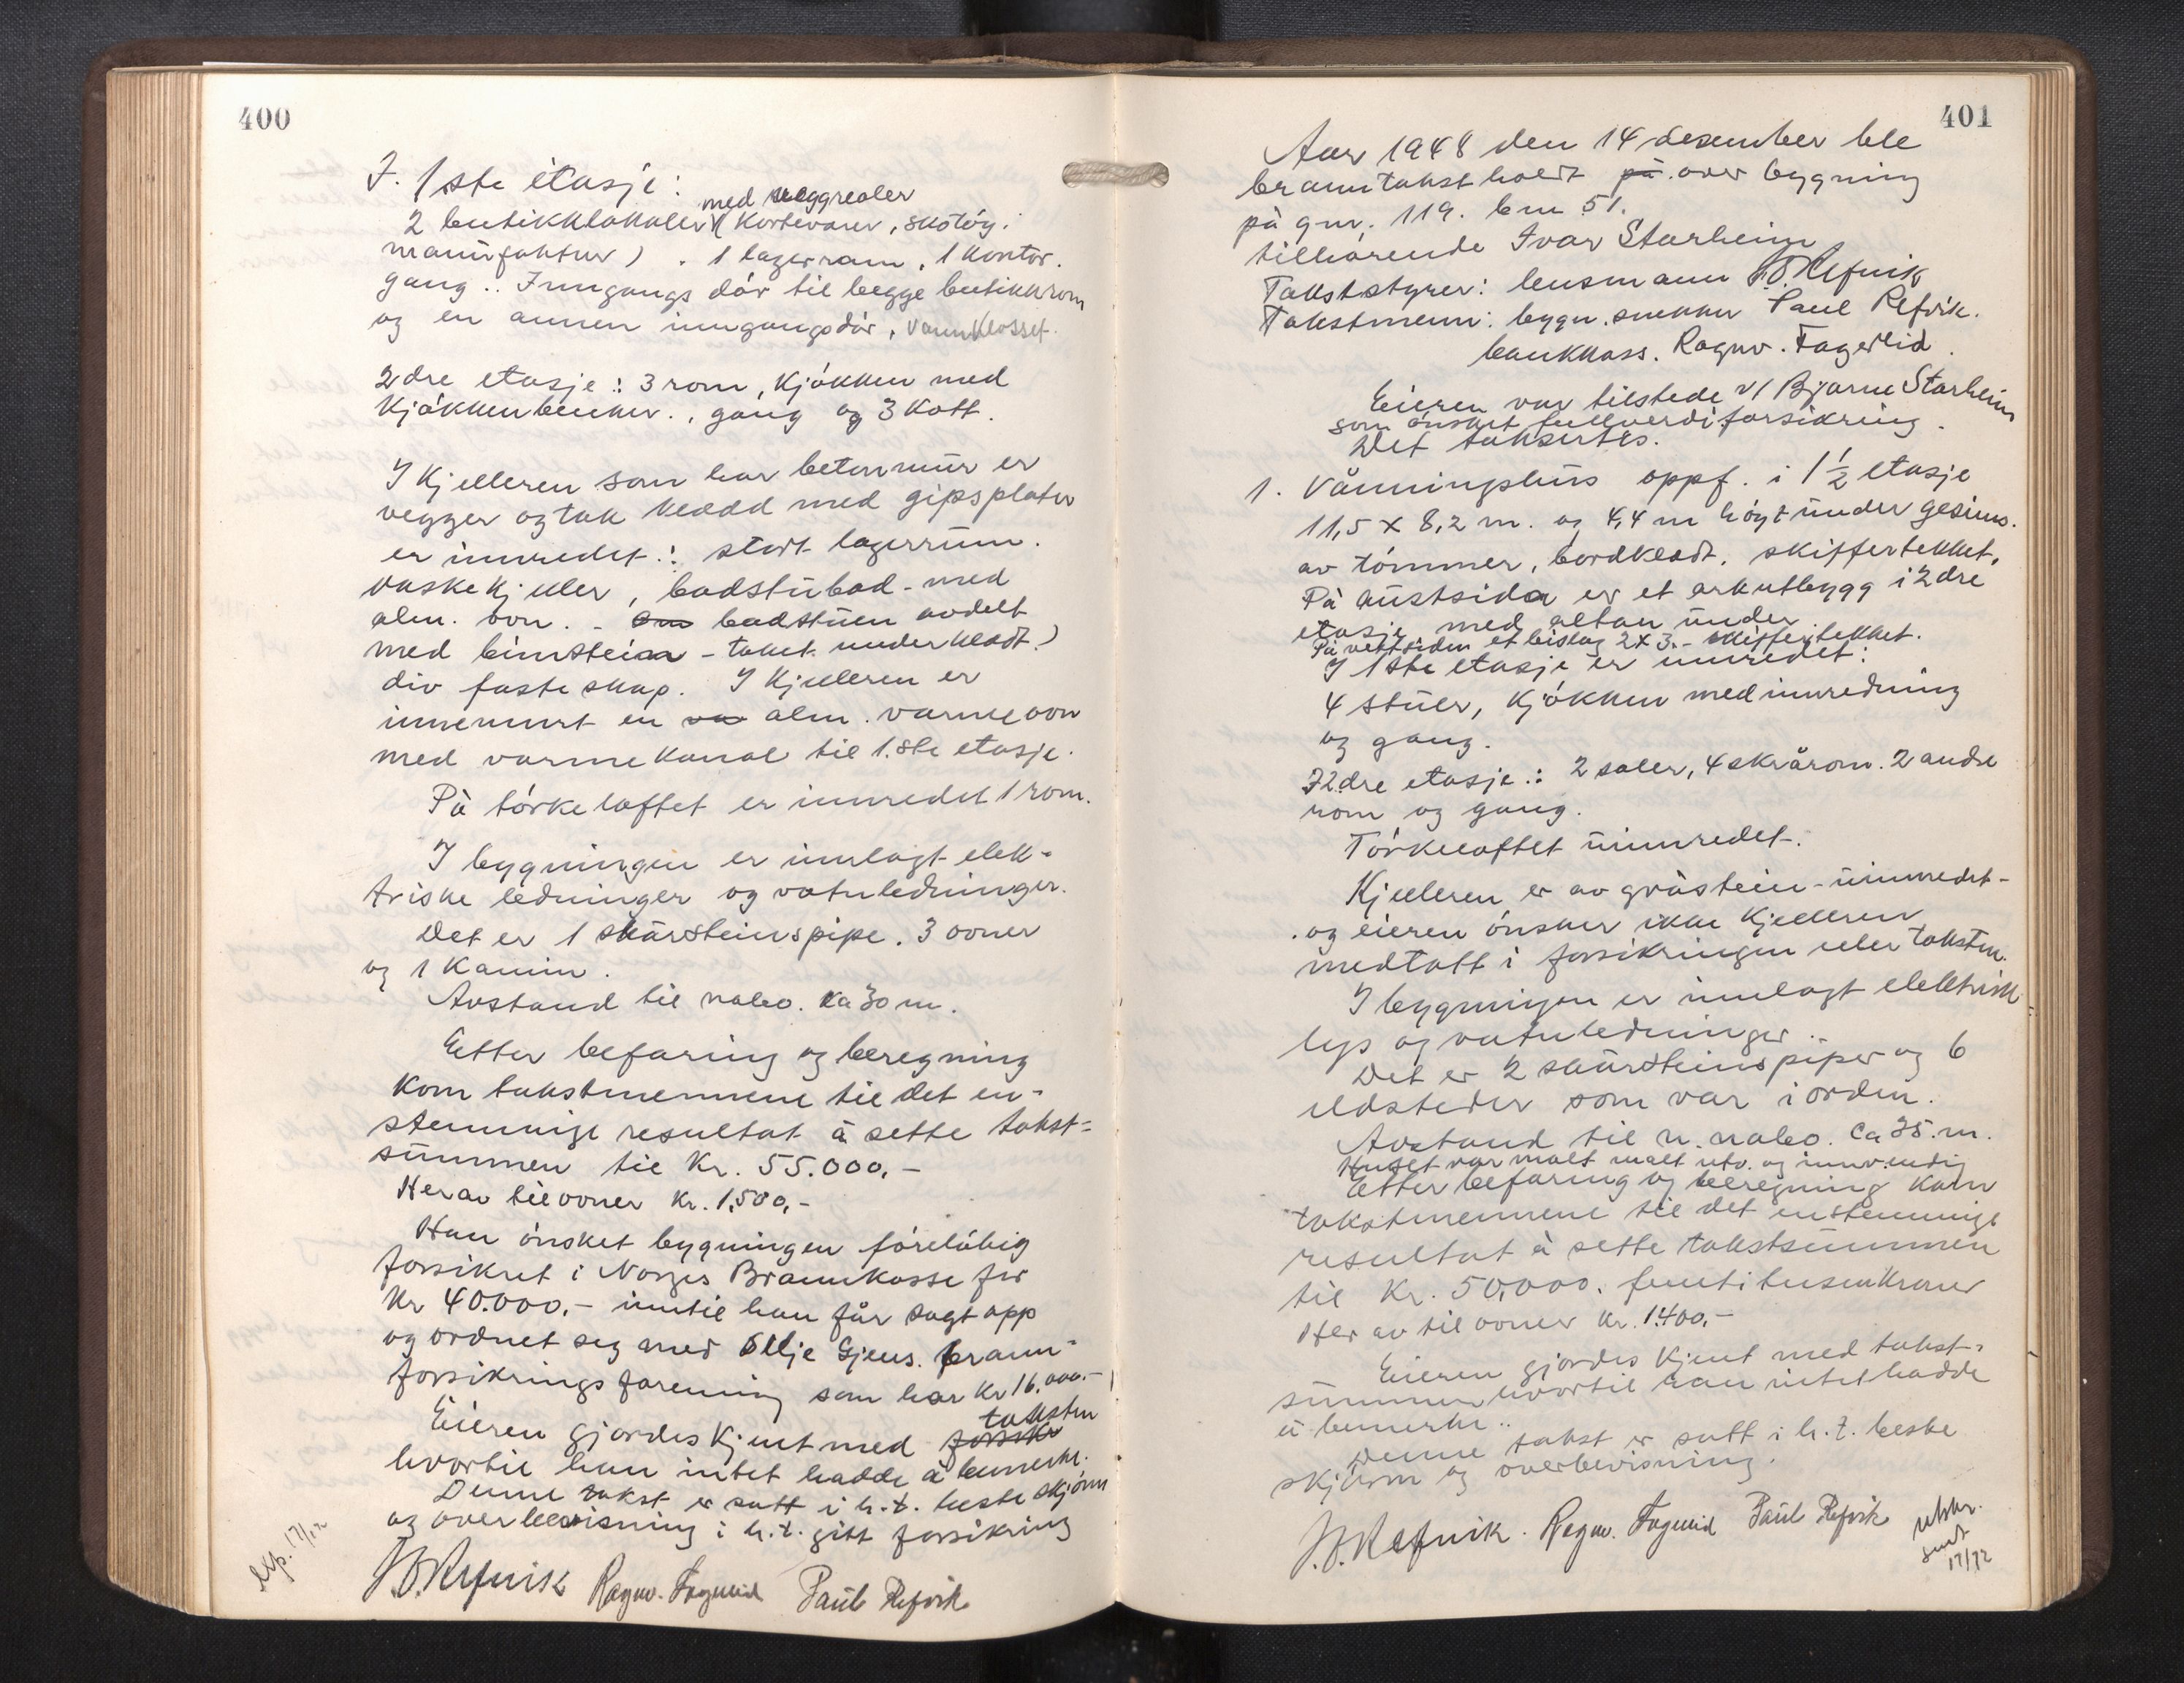 400
I. 1ste etasje:
med veggreoler
2 butikklokaler (Kortevarer, skotöy.
manufaktur). 1 lagerrom, 1 kontor.
gang.. Inngangs dör til begge butikkrom
og en annen inngangsdör, vannklosset.
2dre etasje: 3 rom, kjökken med
kjökkenbenker., gang og 3 kott.
I kjelleren som har betonmur er
vegger og tak kledd med gipsplater
er innredet: stort lagerrum.
vaskekjeller, badstubad - med
alm. ovn. - badstuen avdelt
med bimstein - taket underkledt.)
div faste skap. I kjelleren er
innemurt en alm. varmeovn
med varmekanal til 1.ste etasje.
På törkeloftet er innredet 1 rom.
I bygningen er innlagt elek-
triske ledninger og vatnledninger.
Det er 1 skorsteinspipe. 3 ovner
og 1 Kamin.
Avstand til nabo. ca 30 m.
Etter befaring og beregning
kom takstmennene til det en-
stemmige resultat å sette takst-
summen til Kr. 55.000,-
Herav til ovner kr. 1.500,-
Han önsket bygningen förelöbig
forsikret i Norges Brannkasse for
kr 40.000.- inntil han får sagt opp
og ordnet seg med Selje Gjens. brann-
forsikringsforening som har kr 16.000.-
taksten
Eieren gjordes kjent med forsikr
hvortil han intet hadde å bemerke.
Denne takst er satt i h.t. beste skjönn
og overbevisning i h.t. gitt forsikring
exp. 17/12
J.B. Refvik Ragnv. Fagerlid Paul Refvik
401
Aar 1948 den 14 desember ble
branntakst holdt på over bygning
på gnr. 119. bnr 51.
tilhörende Ivar Starheim
Takststyrer: lensmann J.B. Refvik
Takstmenn: bygn. snekker Paul Refvik.
bankkass. Ragnv. Fagerlid.
Eieren var tilstede v/ Bjarne Starheim
som önsket fullverdiforsikring.
Det taksertes.
1. Våningshus oppf. i 1½ etasje
11,5 x 8,2 m. og 4,4 m högt under gesims.
av tömmer, bordkledt. skiffertekket.
På austsida er et arkutbygg i 2dre
etasje med altan under.
På vestsiden et bislag 2x3.- skiffertekket.
I 1ste etasje er innredet:
4 stuer, kjökken med innredning
og gang.
I 2dre etasje: 2 saler, 4 skrårom. 2 andre
rom og gang.
Törkeloftet uinnredet.
Kjelleren er av gråstein - uinnredet -
og eieren önsker ikke kjelleren
medtatt i forsikringen eller taksten.
I bygningen er innlagt elektrisk
lys og vatnledninger..
Det er 2 skorsteinspiper og 6
ildsteder som var i orden.
Avstand til n. nabo. ca 35. m.
Huset var malt malt utv. og innvendig
Etter befaring og beregning kom
takstmennene til det enstemmige
resultat å sette takstsummen
til Kr. 50.000. femti tusenkroner
Her av til ovner kr. 1400,-
Eieren gjordes kjent med takst-
summen hvortil han intet hadde
å bemerke..
Denne takst er satt i h.t. beste
skjönn og overbevisning.
J.B. Refvik. Ragnv. Fagerlid Paul Refvik
utskr.
sendt
17/12